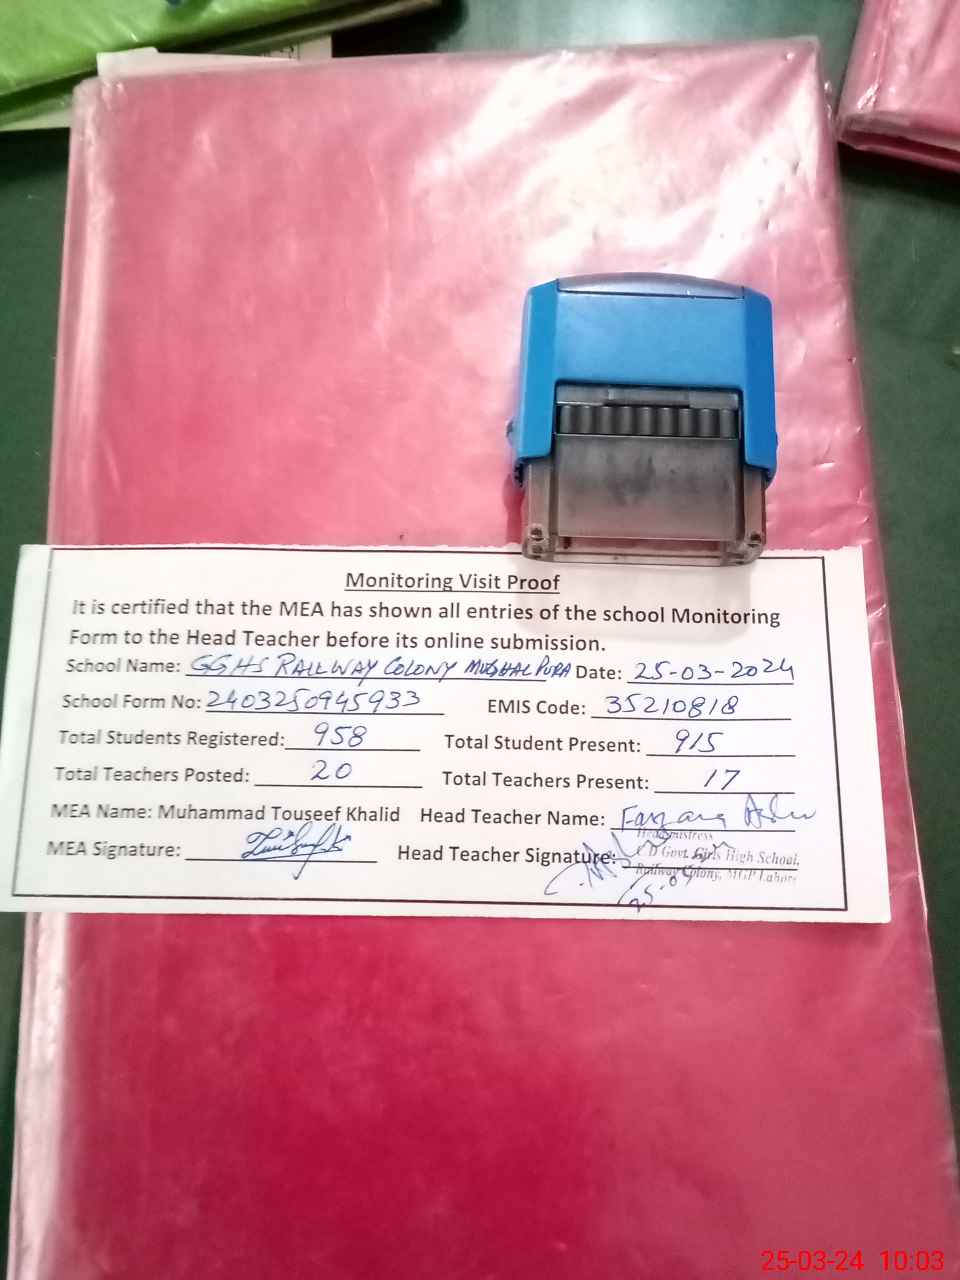 Monitoring Visit Proof
It is certified that the MEA has shown all entries of the school Monitoring
Form to the Head Teacher before its online submission.
School Name: GGHS RAILWAY COLONY MUGHALPURA Date: 25-03-2024
School Form No: 240325094593​3 EMIS Code: 35210818
Total Students Registered: 958 Total Student Present: 915
Total Teachers Posted: 20 Total Teachers Present: 17
MEA Name: Muhammad Touseef Khalid Head Teacher Name: Farzana
Headmistress
MEA Signature: Head Teacher Signature: C D Govt. Girls High School,
Railway Colony, MGP Lahore
25-03-24 10:03